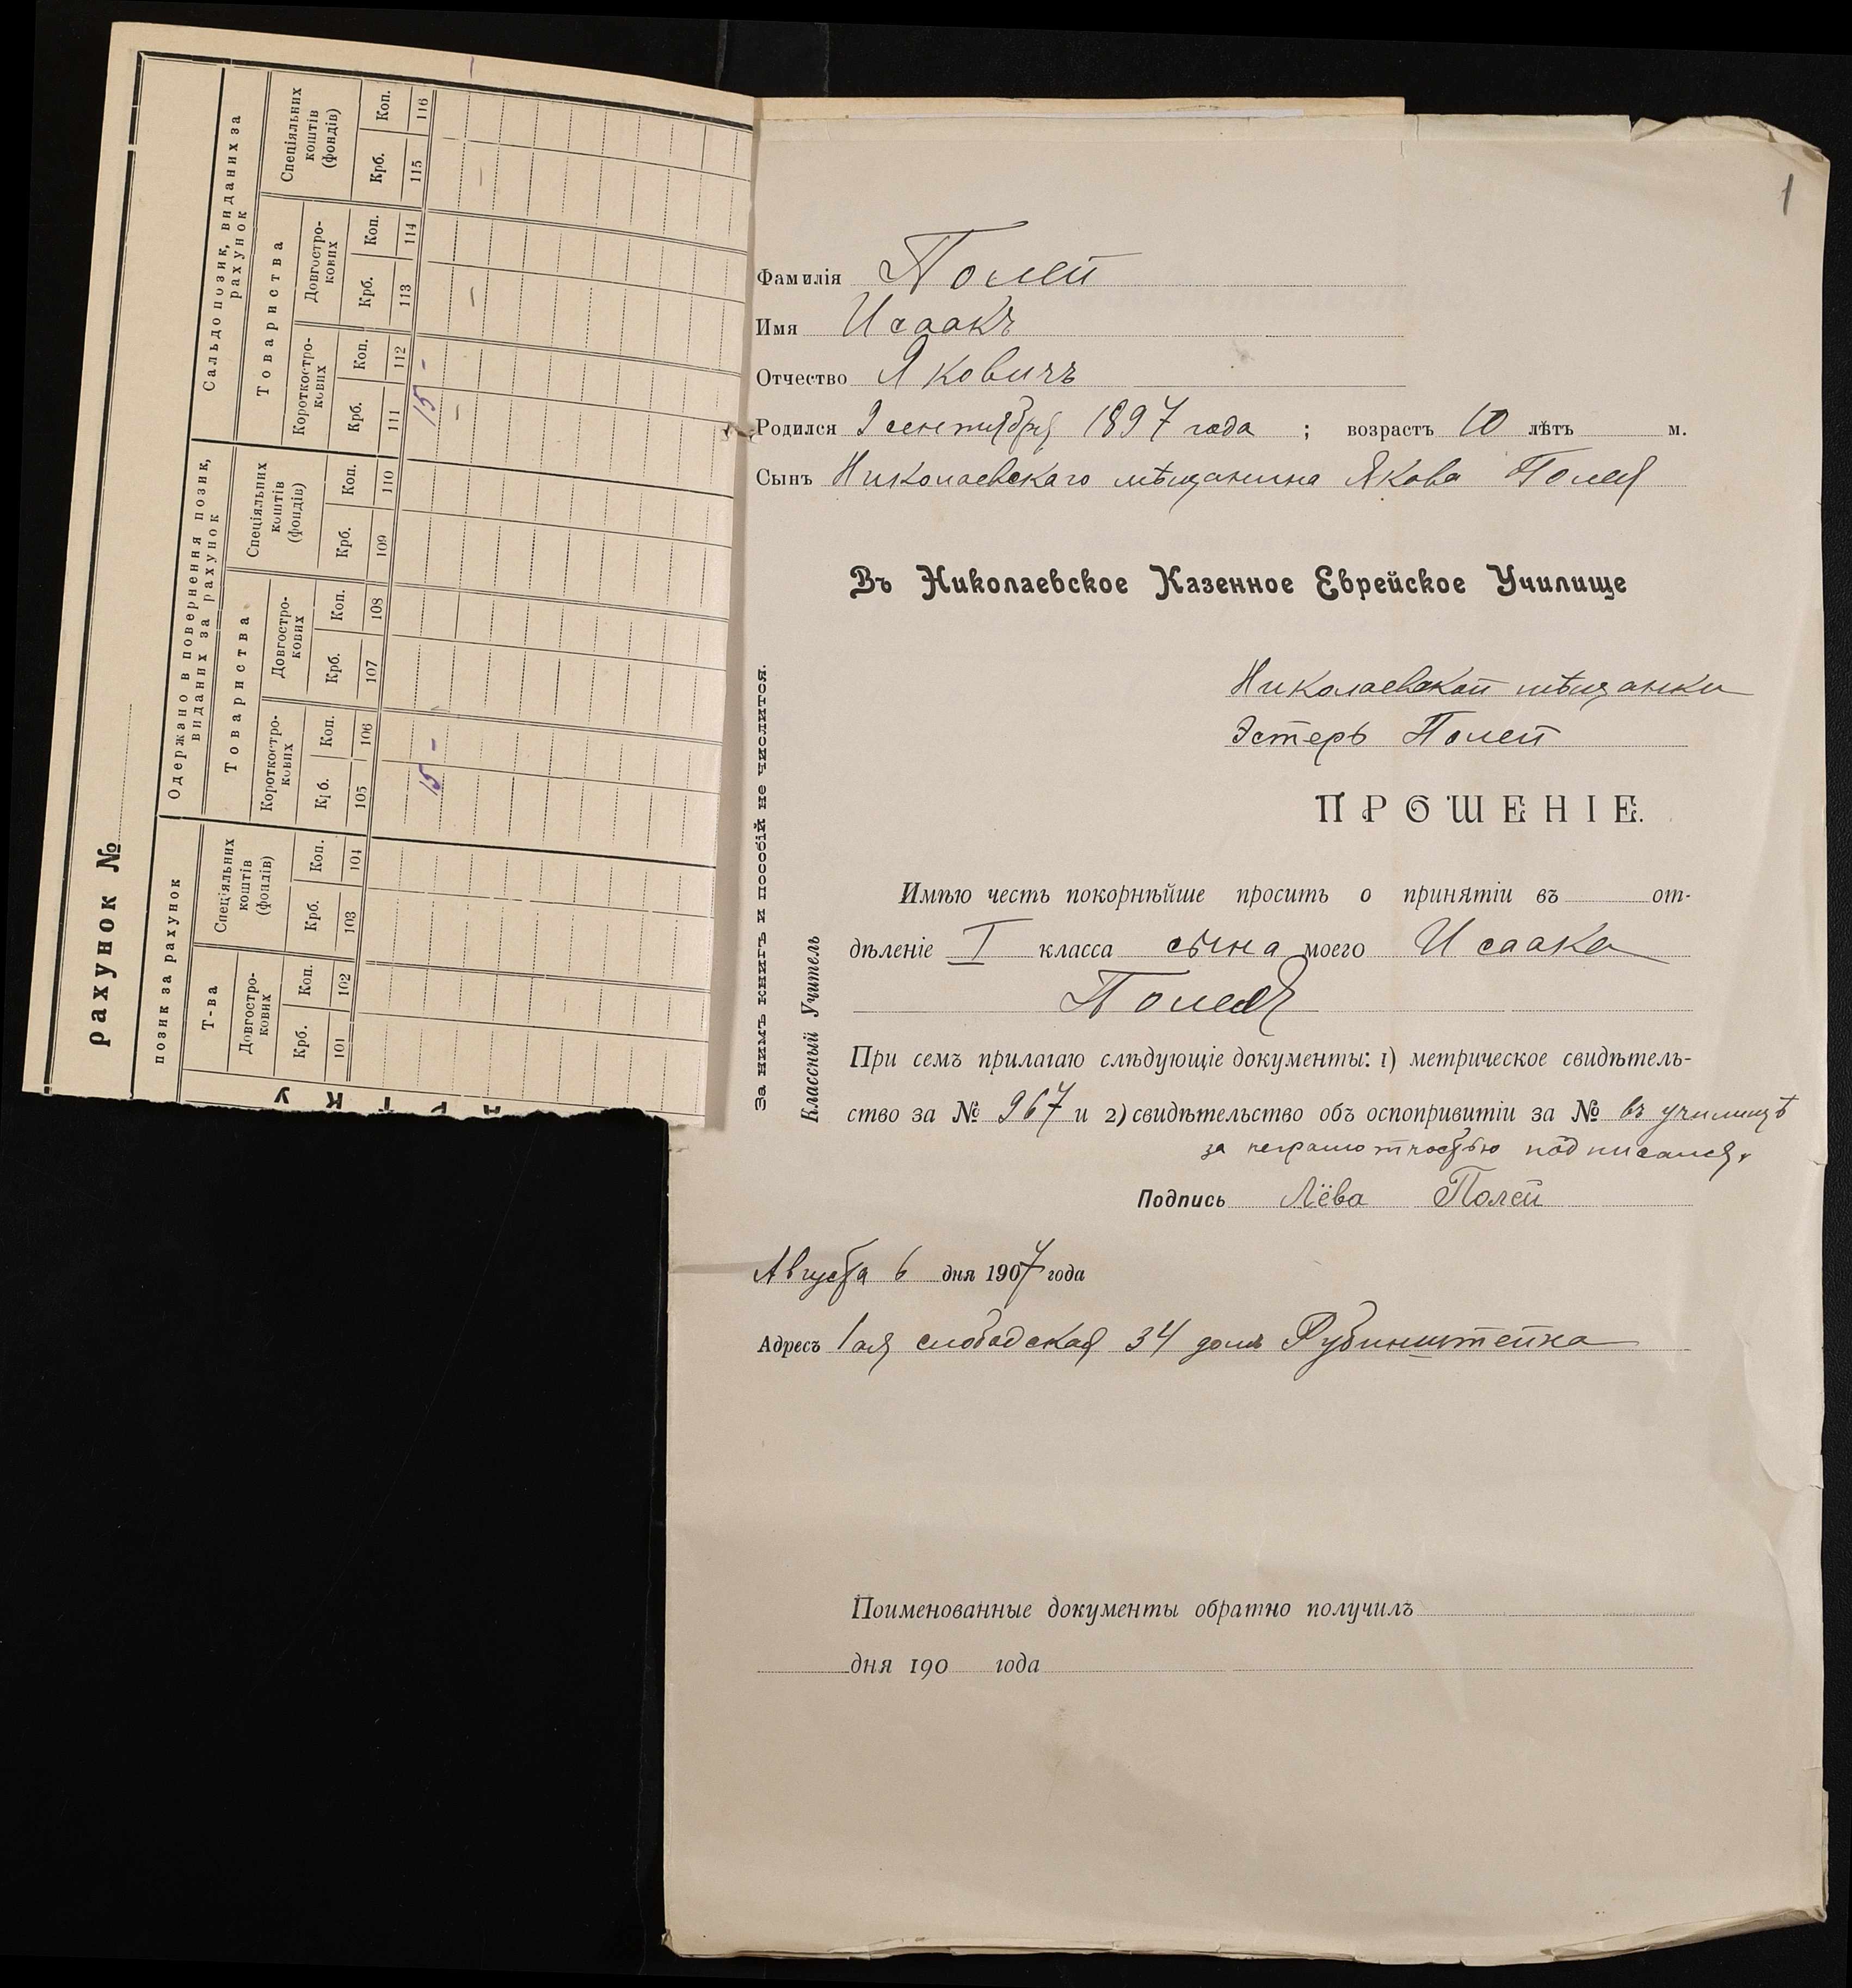 рахунок №
позик за рахунок
Т-ва
Довгостро-
кових
Спеціяльних
коштів
(фондів)
Крб. Коп. Крб. Коп.
101 102 103 104
Одержано в повернення позик,
виданих за рахунок
Товариства
Короткостро-
кових
Довгостро-
кових
Спеціяльних
коштів
(фондів)
Крб. Коп. Крб. Коп. Крб. Коп.
105 106 107 108 109 110
15 -
Сальдо позик, виданих за
рахунок
Товариства
Короткостро-
кових
Довгостро-
кових
Спеціяльних
коштів
(фондів)
Крб. Коп. Крб. Коп. Крб. Коп.
111 112 113 114 115 116
15 -
1
Фамилія Полей
Имя Исаакъ
Отчество Яковичъ
Родился 9 сентября 1897 года ; возрастъ 10 лѣтъ м.
Сынъ Николаевскаго мѣщанина Якова Полея
Въ Николаевское Казенное Еврейское Училище
Николаевской мѣщанки
Эстеръ Полей
ПРОШЕНІЕ.
Имѣю честь покорнѣйше просить о принятіи въ от-
дѣленіе I класса сына моего Исаака
Полея
При семъ прилагаю слѣдующіе документы: 1) метрическое свидѣтель-
ство за № 967 и 2) свидѣтельство объ оспопривитіи за № въ училищѣ
за неграмотностью подписался
Подпись Лёва Полей
Августа 6 дня 1907 года
Адресъ 1ая слободская 34 домъ Рубинштейна
Поименованные документы обратно получилъ
дня 190 года
За нимъ книгъ и пособій не числится.
Классный Учитель